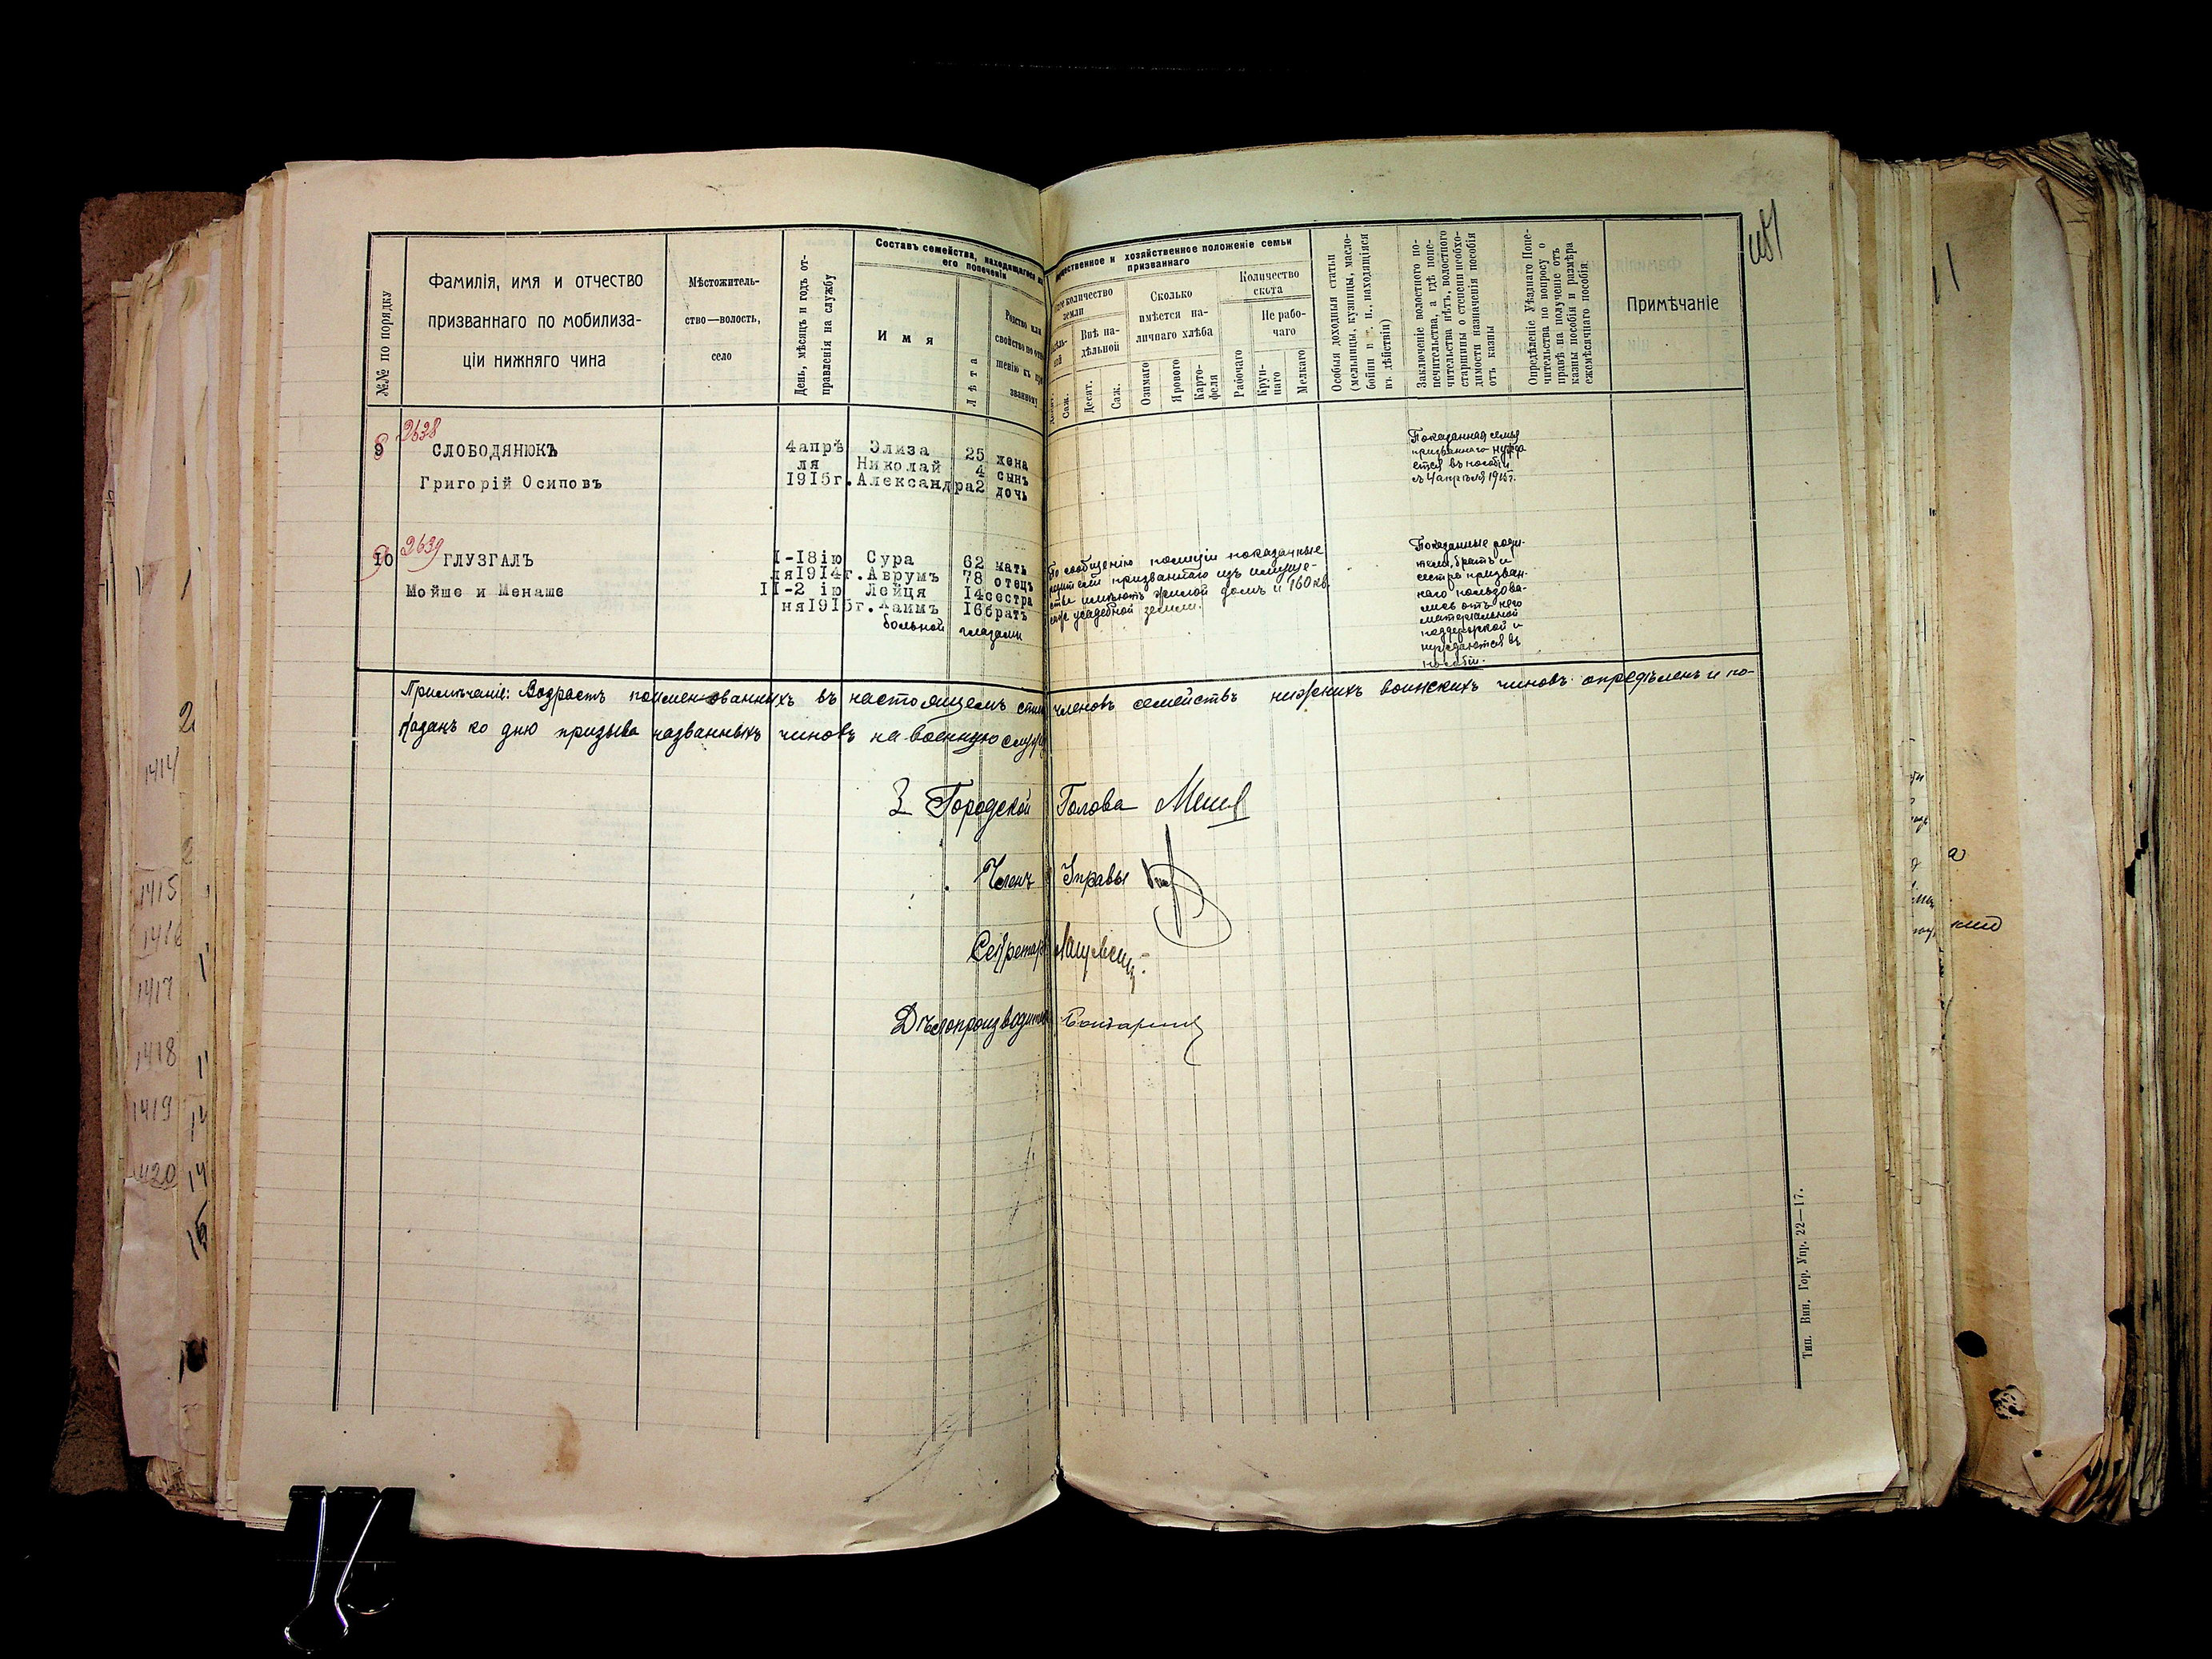 №№ по порядку
Фамилія, имя и отчество
призваннаго по мобилиза-
ціи нижняго чина
Мѣстожитель-
ство—волость,
село
День, мѣсяцъ и годъ от-
правленія на службу
Составъ семейства, находящагося
его попеченіи
Имя
Лѣта
Родство или
свойство по отно
шенію къ при
званному
хозяйственное положеніе семьи
призваннаго
количество
земли
Внѣ на-
дѣльной
Саж.
Десят.
Саж.
Сколько
имѣется на-
личнаго хлѣба
Озимаго
Ярового
Карто-
феля
Количество
скота
Рабочаго
Не рабо-
чаго
Круп-
наго
Мелкаго
Особыя доходныя статьи
(мельницы, кузницы, масло-
бойни и т. п., находящіяся
въ дѣйствіи)
Заключеніе волостного по-
печительства, а гдѣ попе-
чительства нѣтъ, волостного
старшины о степени необхо-
димости назначенія пособія
отъ казны
Опредѣленіе Уѣзднаго Попе-
чительства по вопросу о
правѣ на полученіе отъ
казны пособія и размѣра
ежемѣсячнаго пособія
Примѣчаніе
9
2638
СЛОБОДЯНЮКЪ
Григорій Осиповъ
4апрѣ
ля
1915г.
Элиза 25 жена
Николай 4 сынъ
Александра2 дочь
Показанная семья
призваннаго нужда
ется въ пособіи
съ 4 апрѣля 1915г.
10
2639
ГЛУЗГАЛЪ
Мойше и Менаше
I-18ію
ля1914г.
II-2 ію
ня1915г.
Сура 62 мать
Аврумъ 78 отецъ
Лейця 14сестра
Хаимъ 16братъ
больной глазами
По сообщенію полиціи показанные
родители призваннаго изъ имуще-
ства имѣютъ жилой домъ и 160 кв.
саж усадебной земли.
Показанные роди-
тели, братъ и
сестра призван-
наго пользова-
лись отъ него
матеріальной
поддержкой и
нуждаются въ
пособіи.
Примѣчаніе: Возрастъ поименованныхъ въ настоящемъ членовъ семействъ нижнихъ воинскихъ чиновъ опредѣленъ и по-
казанъ ко дню призыва названныхъ чиновъ на военную службу
З Городской Голова
Членъ Управы
Секретарь
Дѣлопроизводитель
Тип. Вин. Гор. Упр. 22—17.
1414
1415
1416
1417
1418
1419
1420